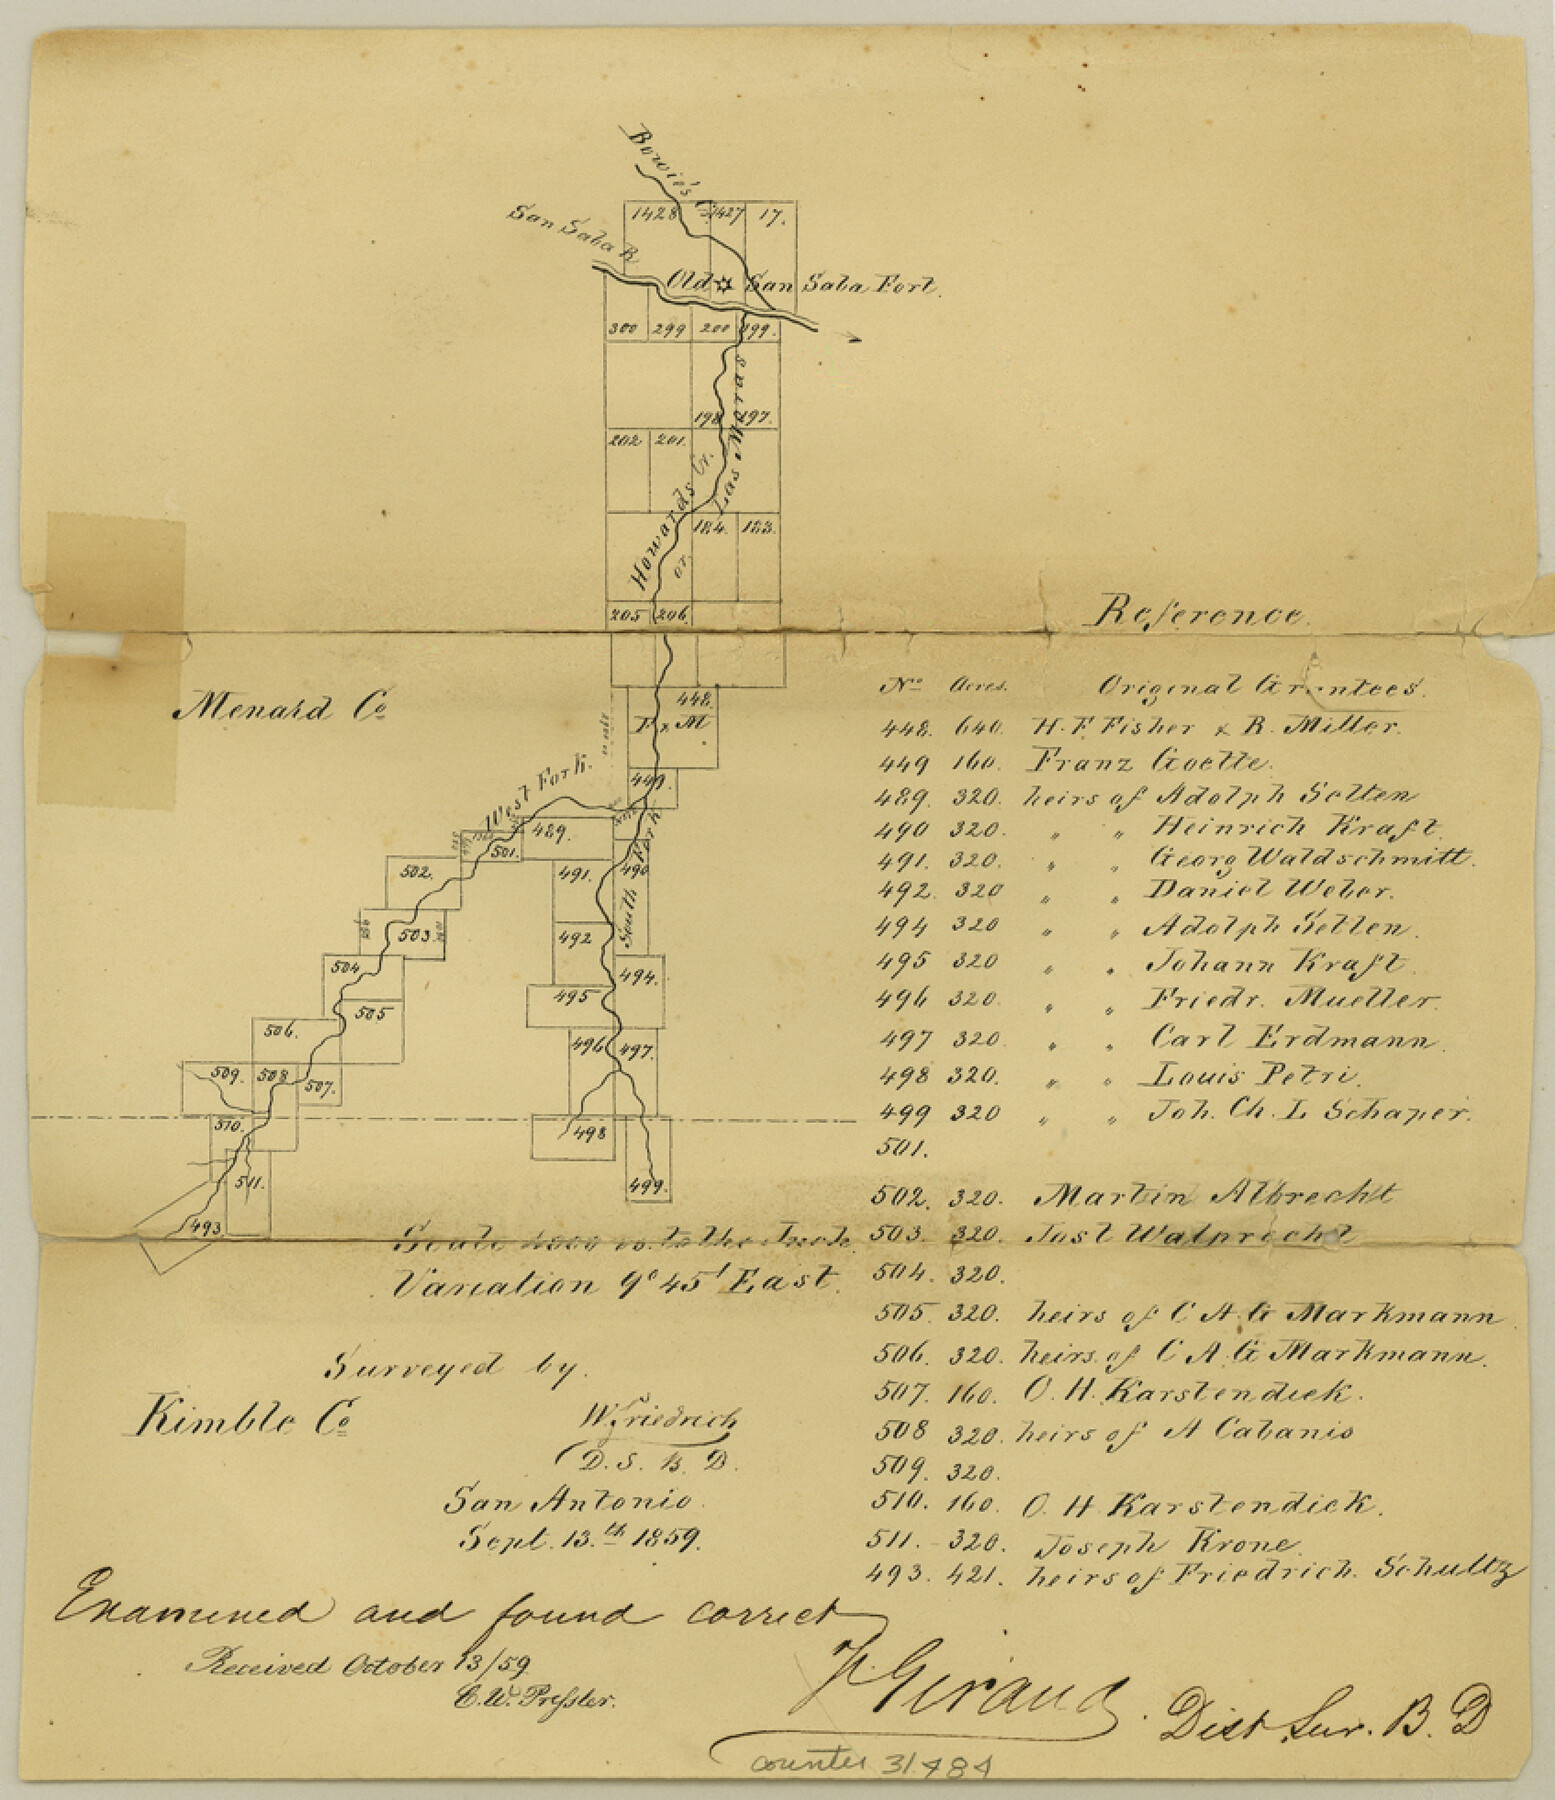 Bowie's C.
San Saba R
1428 1427 17.
Old San Saba Fort.
300 299 200 199.
198 197.
202 201.
Las Moras
Howards Cr.
or
184. 183.
205 206.
Menard Co
448.
F & M
449.
West Fork.
South Fork
489.
501.
490
502.
491.
503.
492
504
494.
505
495
506.
496 497.
509. 508 507.
510.
498
511.
499.
493
Scale 4000 vs. to the Inch.
Variation 9° 45' East.
Surveyed by.
Kimble Co
W. Friedrich
D. S. B. D.
San Antonio.
Sept. 13.th 1859.
Reference.
No Acres. Original Grantees.
448. 640. H. F. Fisher & B. Miller.
449 160. Franz Goette.
489. 320. heirs of Adolph Setten
490 320. " " Heinrich Kraft.
491. 320. " " Georg Waldschmitt.
492. 320 " " Daniel Weber.
494 320 " " Adolph Setten.
495 320 " " Johann Kraft.
496 320. " " Friedr. Mueller.
497 320. " " Carl Erdmann.
498 320. " " Louis Petri.
499 320 " " Joh. Ch. L Schaper.
501.
502. 320. Martin Albrecht
503. 320. Jost Walprecht
504. 320.
505. 320. heirs of C A. G Markmann.
506. 320. heirs of C A. G Markmann.
507. 160. O. H. Karstendiek.
508 320. heirs of A Cabanis
509. 320.
510. 160. O. H Karstendick.
511. 320. Joseph Krone.
493. 421. heirs of Friedrich. Schultz
Examined and found correct
Received October 13/59
C. W. Pressler.
F. Giraud
Dist Sur. B. D
counter 31484